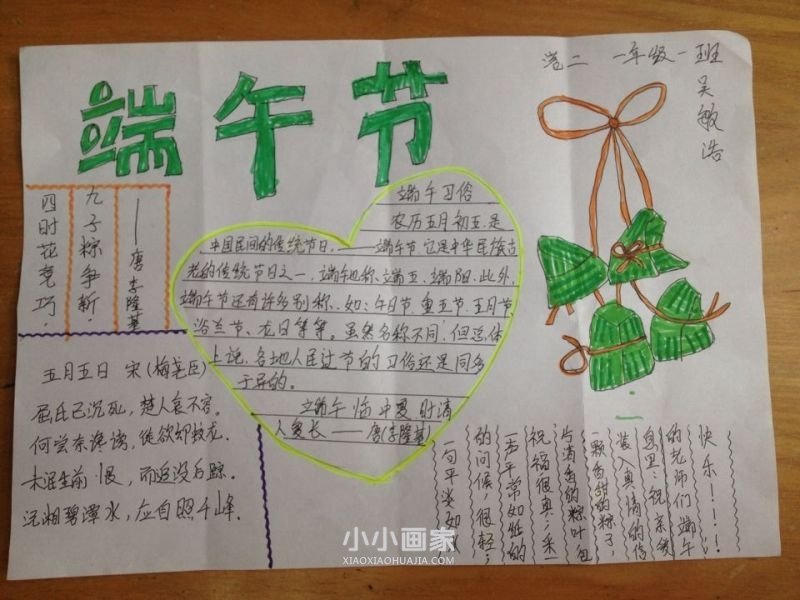 端午节
港二 一年级一班
吴敏浩
四时花竞巧.
九子粽争新.
——唐 李隆基
端午习俗
农历五月初五.是
中国民间的传统节日.——端午节 它是中华民族古
老的传统节日之一,端午也称端五.端阳.此外,
端午节还有许多别称.如:午日节.重五节.五月节.
浴兰节、龙日等等。虽然名称不同,但总体
上说.各地人民过节的习俗还是同多
于异的。
端午临中夏时清
人复长——唐(李隆基)
五月五日 宋(梅尧臣)
屈氏已沉死,楚人哀不容。
何尝奈谗谤,徒欲却蛟龙.
未泯生前恨,而追没后踪.
沅湘碧潭水,应自照千峰.
一句平淡如
的问候,很轻;
一声平常如纸的
祝福很真;采一
片清香的粽叶包
一颗香甜的粽子,
装入真情的信
息里:祝亲爱
的老师们端午
快乐!!!!
小小画家
XIAOXIAOHUAJIA.COM